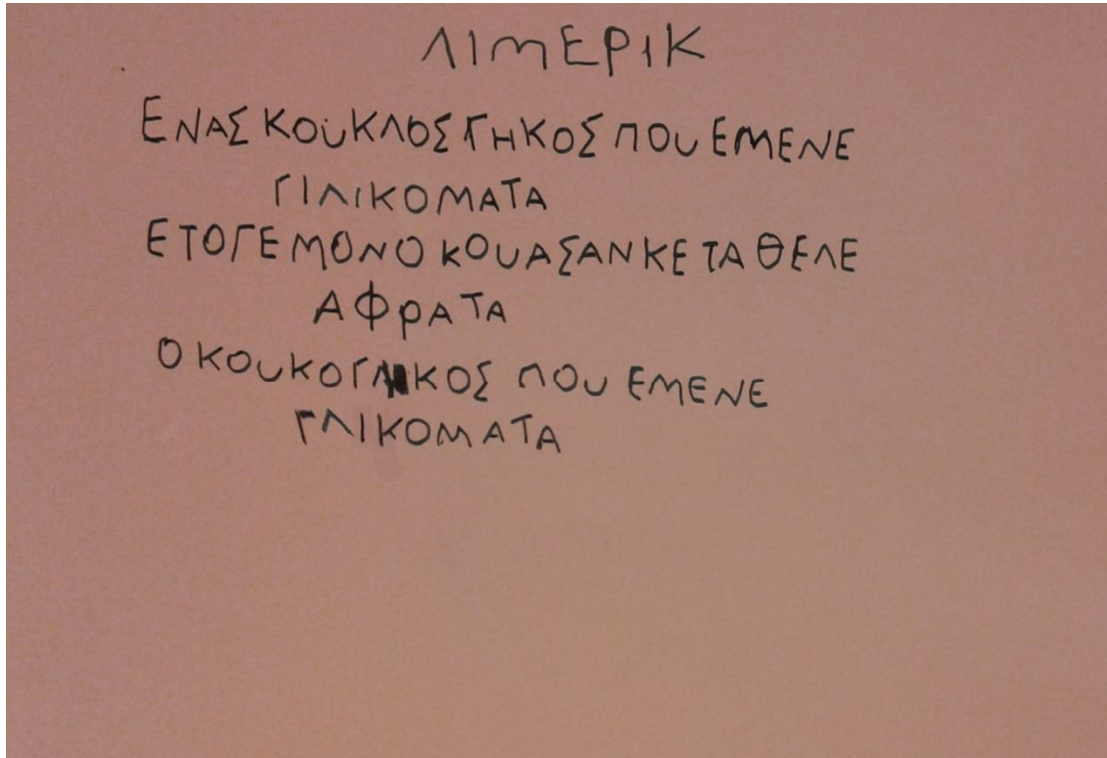 ΛΙΜΕΡΙΚ
ΕΝΑΣ ΚΟΥΚΛΟΣ ΓΗΚΟΣ ΠΟΥ ΕΜΕΝΕ
ΓΙΛΙΚΟΜΑΤΑ
ΕΤΟΓΕ ΜΟΝΟ ΚΟΥΑΣΑΝ ΚΕ ΤΑ ΘΕΛΕ
ΑΦΡΑΤΑ
Ο ΚΟΥΚΟ ΠΟΥ ΕΜΕΝΕ
ΓΛΙΚΟΜΑΤΑ